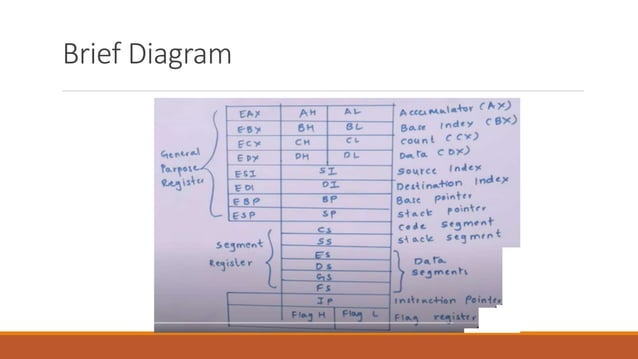 Brief Diagram
EAX AH AL Accumulator (AX)
EBX BH BL Base Index (BX)
ECX CH CL count (CX)
EDX DH DL Data (DX)
General Purpose Register
ESI SI Source Index
EDI DI Destination Index
EBP BP Base pointer
ESP SP stack pointer
CS code segment
SS stack segment
Segment Register
ES
DS
GS
FS
Data segments
IP Instruction Pointer
Flag H Flag L Flag register